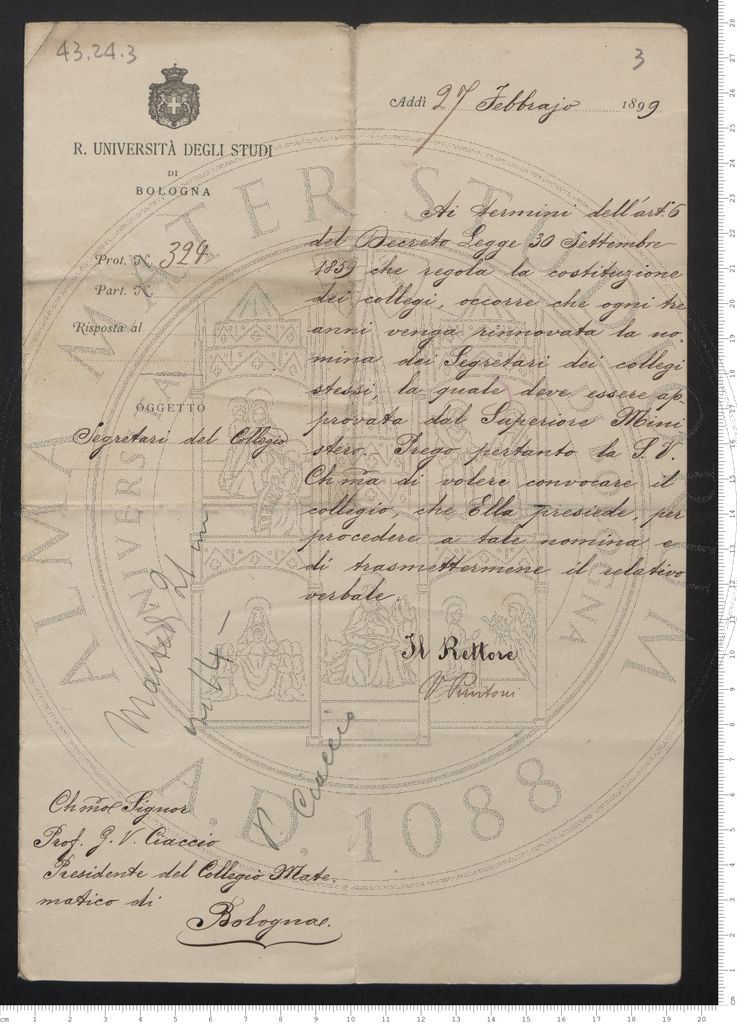 43.24.3
3
Addì 27 Febbrajo 1899
R. UNIVERSITÀ DEGLI STUDI
DI
BOLOGNA
Prot. N. 394
Part. N.
Risposta al
OGGETTO
Segretari del Collegio
Ai termini dell'art.º 6
del Decreto Legge 30 Settembre
1859 che regola la costituzione
dei collegi, occorre che ogni tre
anni venga rinnovata la no-
mina dei Segretari dei collegi
stessi, la quale deve essere ap-
provata dal Superiore Mini
stero. Prego pertanto la S. V.
Chma di volere convocare il
collegio, che Ella presiede, per
procedere a tale nomina e
di trasmettermene il relativo
verbale.
Il Rettore
V Puntoni
Martedì 21
P. Ciaccio
Chmo Signor
Prof. G. V. Ciaccio
Presidente del Collegio Mate-
matico di
Bologna.
ALMA MATER STUDIORUM
A.D. 1088